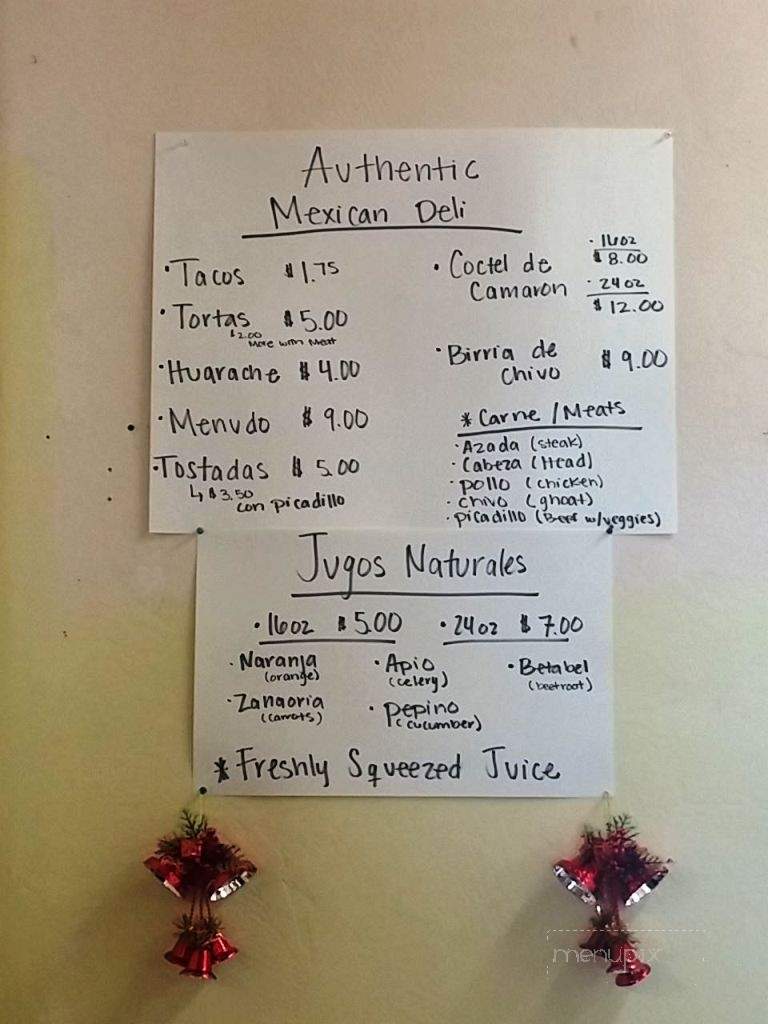 Authentic
Mexican Deli
· Tacos $1.75
· Tortas $5.00
$2.00
More with Meat
· Huarache $4.00
· Menudo $9.00
· Tostadas $5.00
↳ $3.50
con picadillo
· Coctel de
Camaron
· 16oz
$8.00
· 24oz
$12.00
· Birria de
chivo
$9.00
* Carne / Meats
· Azada (steak)
· Cabeza (Head)
· pollo (chicken)
· chivo (ghoat)
· picadillo (Beef w/veggies)
Jugos Naturales
· 16oz $5.00 · 24oz $7.00
· Naranja
(orange)
· Apio
(celery)
· Betabel
(beetroot)
· Zanaoria
(carrots)
· Pepino
(cucumber)
* Freshly Squeezed Juice
menupix